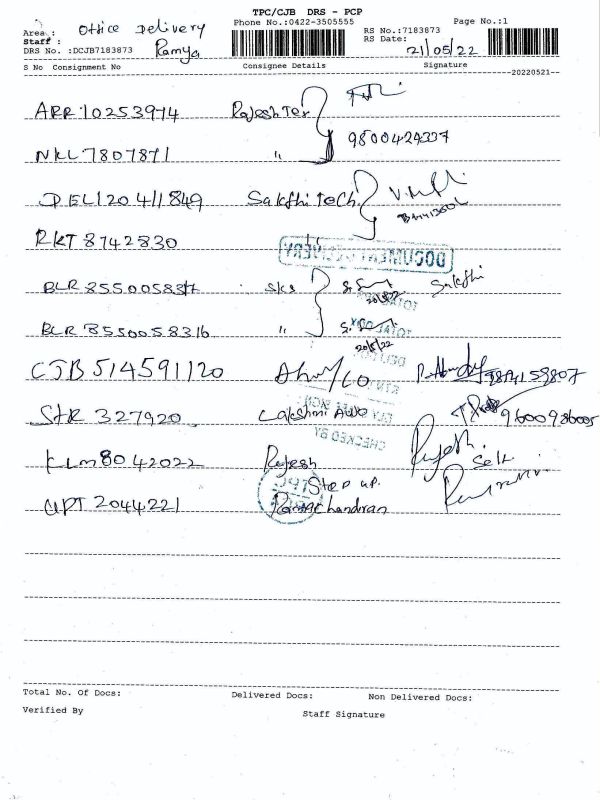 TPC/CJB DRS - PCP
Area : Office Delivery Phone No.:0422-3505555 Page No.:1
Staff : Ramya RS No.:7183873
DRS No. :DCJB7183873 RS Date: 21/05/22
S No Consignment No Consignee Details Signature
20220521
ARR 10253974 Rajesh Tex
NKL 7807871 " 9800424337
DEL120411849 Sakthi Tech
RKT 8742830 "
DOCUMENT DELIVERY
BLR 855005831 SKS Sakthi
20/5/22
TOTAL
BLR 8550058316 "
TOTAL DOX
20/5/22
CJB 514591120
STR 327920 Lakshmi Auto 9600986005
CHECKED BY
KLM 8042022 Rajesh Rajesh
Self
Step up.
UPT 2044221 Ramachandran
TPC
Total No. Of Docs: Delivered Docs: Non Delivered Docs:
Verified By Staff Signature